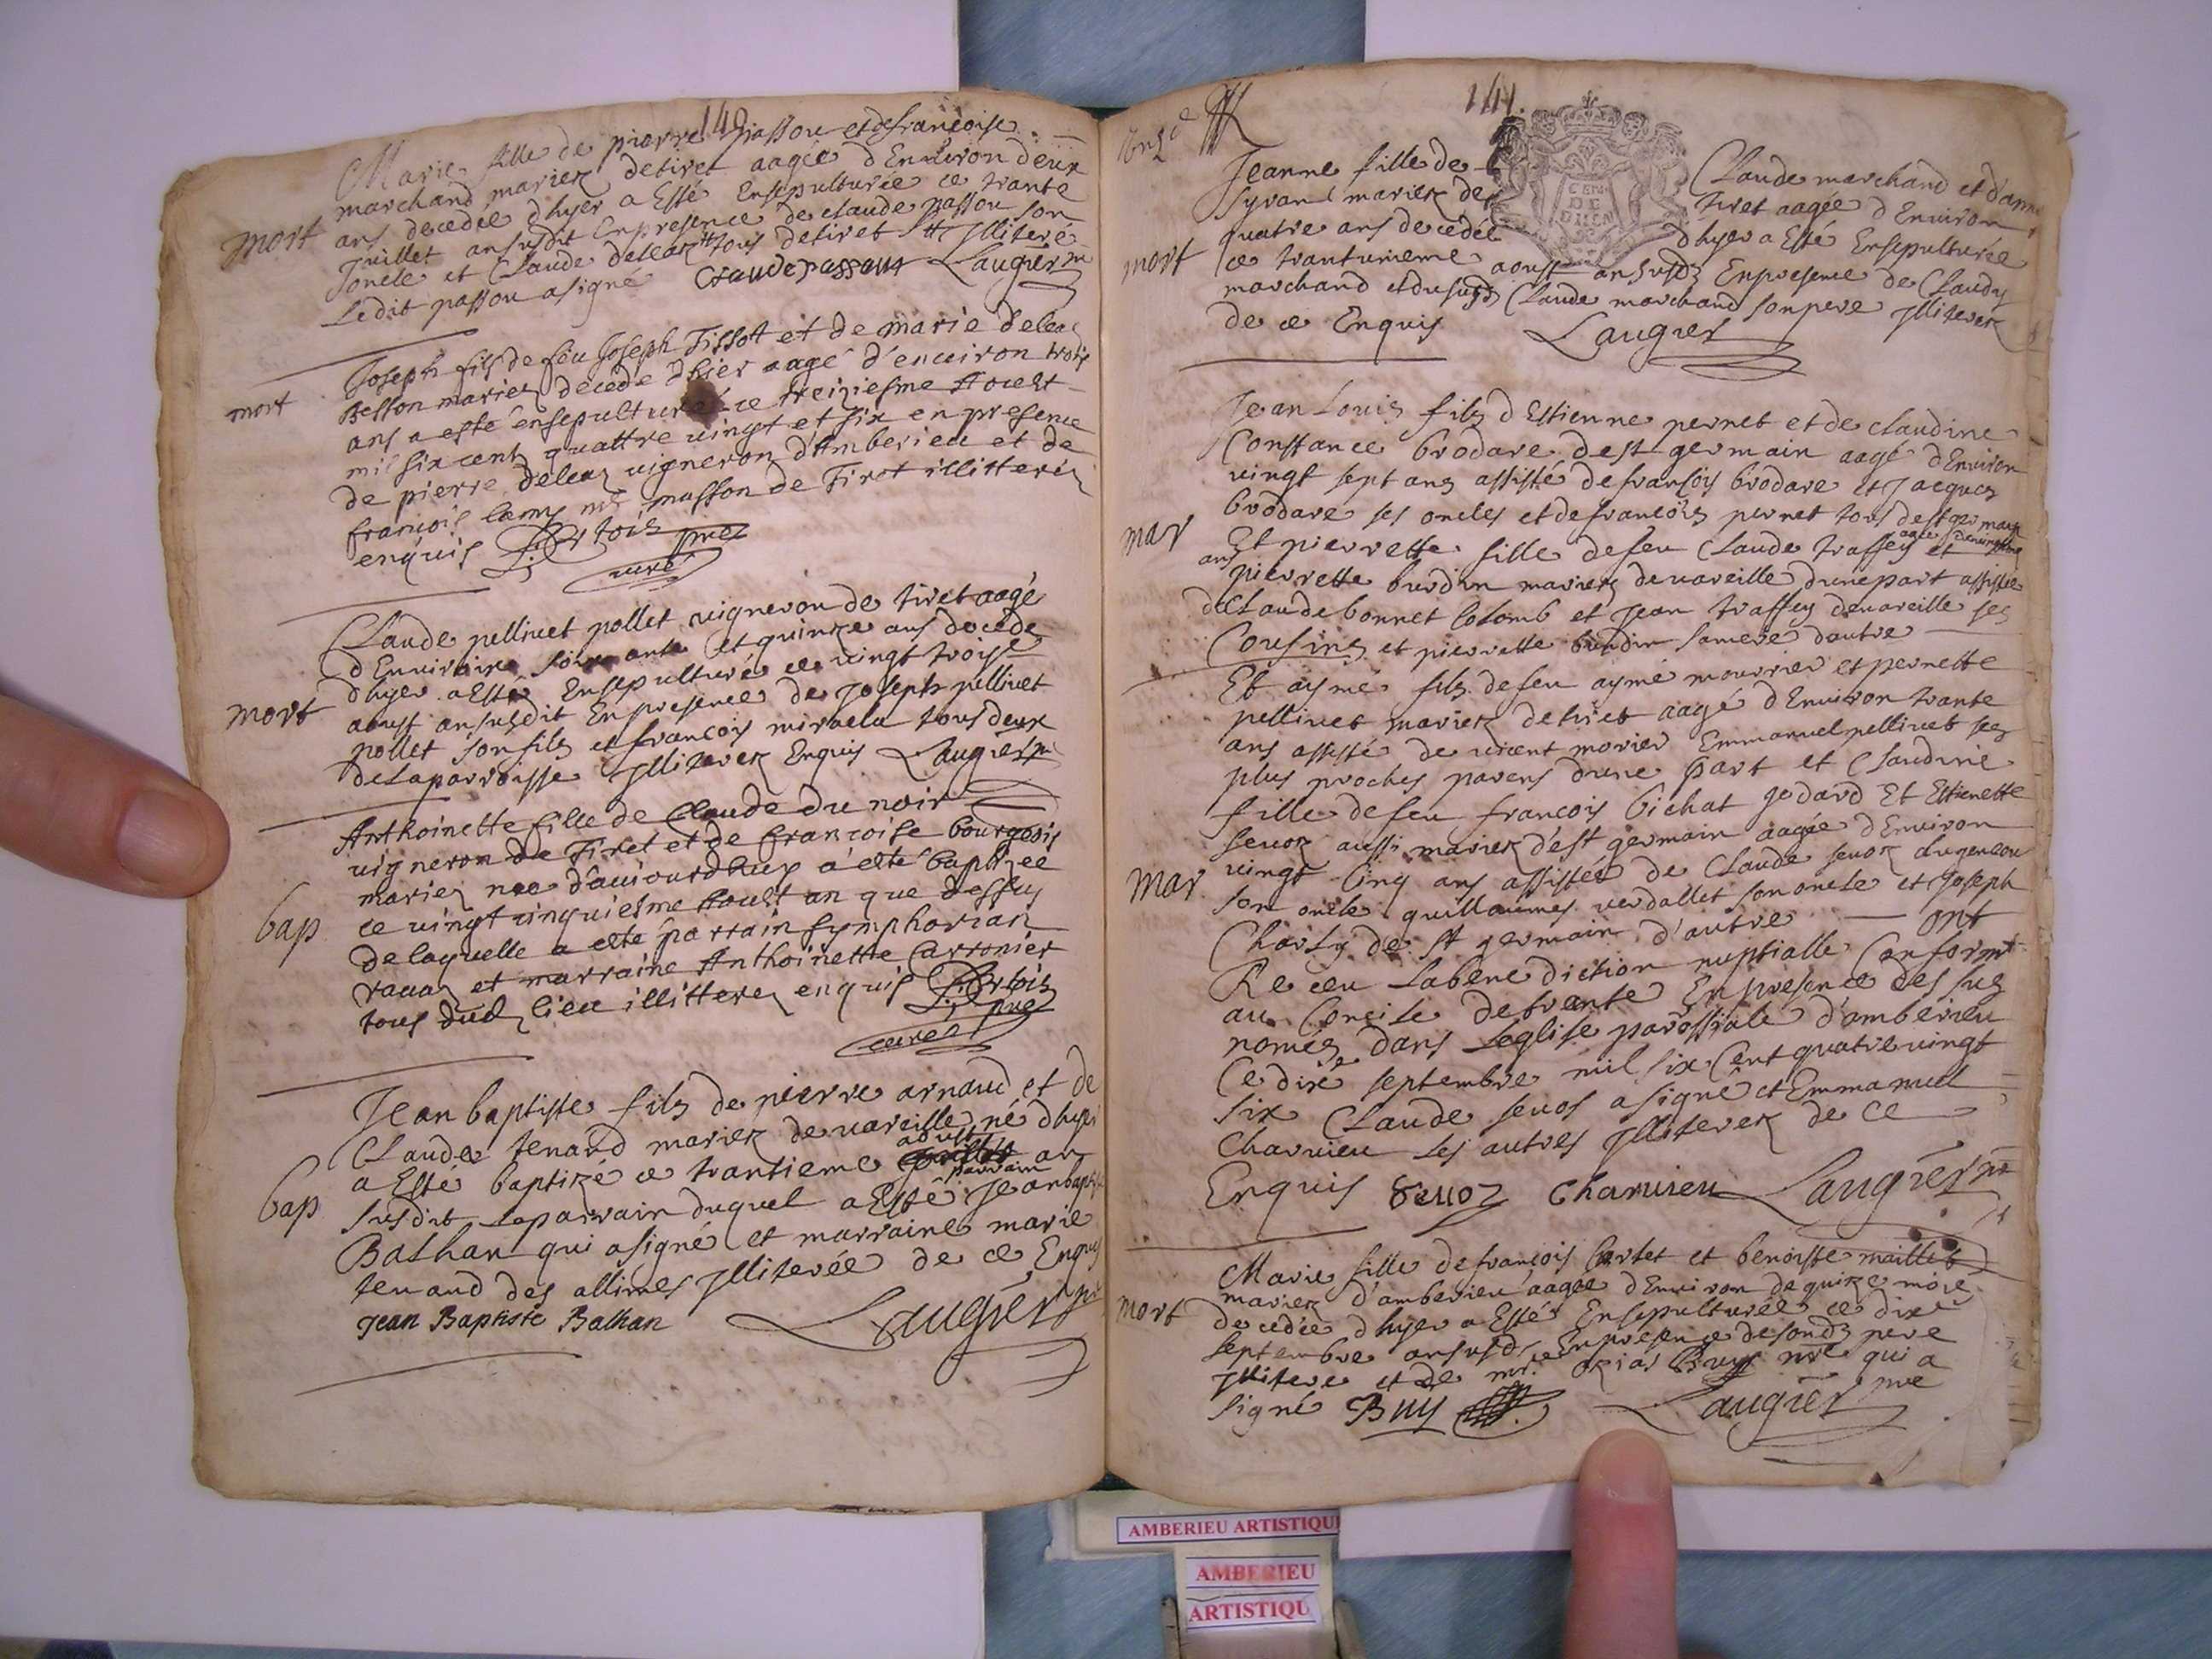 140
Marie fille de pierre passou et de francoise
marchand mariez de tiret aagée d'Environ deux
ans decedée d'hyer a Esté Ensepulturée ce trante
mort
Juillet an susdit Enpresence de claude passou son
oncle et Claude deleaz tous de tiret Illiteré
Ledit passou a signé Claude passou Laugier
Joseph fils de feu Joseph Tissot et de marie deleaz
Besson mariez decede dhier aagé d'enuiron trois
mort
ans a esté ensepulturé ce treiziesme Aoust
mil six cents quattre vingt et six en presence
de pierre deleaz vigneron d'Amberieu et de
francois lamy masson de Tiret illitterez
enquis
curé
Claude pelliuet pollet vigneron de tiret aagé
d'Enuiron soixante et quinze ans decede
d'hyer a Esté Ensepulturé ce vingt troise
mort
aoust an susdit Enpresence de Joseph pelliuet
pollet son fils et francois miraela tous deux
de La parroisse Illiterez Enquis Laugier
Anthoinette fille de Claude du noir
vigneron de Tiret et de francoise bourgeois
mariez nee d'auiourdhuy a este baptisee
bap
ce vingt cinquiesme Aoust an que dessus
de laquelle a esté parrain symphorian
rauaz et marraine Anthoinette Carronier
tous dud lieu illitterez enquis
curé
Jean baptiste fils de pierre arnaud et de
Claude tenand mariez de vareille né d'hyer
aoust
a Esté baptizé ce trantieme an
bap
parrain
susdit Le parrain duquel a Esté Jean bapt
Balhan qui a signé et marraine marie
tenand des allimes Illiterée de ce Enquis
Jean Baptiste Balhan Laugier
141
Jeanne fille de Claude marchand et d'anne
Syvand mariez de tiret aagée d'Enuiron
quatre ans decedée d'hyer a Esté Ensepulturée
mort
ce trantunieme aoust an susd Enpresence de Claudy
marchand et du susd Claude marchand son pere Illiterez
de ce Enquis Laugier
Jean Louis fils d'Estienne pernet et de claudine
Constance brodare de st germain aagé d'Enuiron
vingt sept ans assisté de francois brodare et Jacques
brodare ses oncles et de francois pernet tous de st germain
mar
Et pierrette fille de feu Claude traffey et
ans
pierrette burdin mariez de vareille d'une part assistée
de Claude bonnet Colomb et Jean traffey de vareille ses
Cousins et pierrette burdin sa mere d'autre
Et aymé fils de feu aymé mourrier et pernette
pelliuet mariez de tiret aagé d'Enuiron trante
ans assisté de vicent morier Emmanuel pelliuet ses
plus proches parens d'une part et Claudine
fille de feu francois bichat godard Et Estienette
seuoz aussi mariez de st germain aagée d'Enuiron
mar
vingt Cinq ans assistée de Claude seuoz
son oncle guillaumes verdallet son oncle et Joseph
Charly de st germain d'autre ont
Receu La benediction nuptialle Conformt
au Concile de trante En presence des sus
només dans Leglise paroissiale d'amberieu
Ce dixe septembre mil six Cent quatre vingt
six Claude seuos a signé et Emmanuel
Charuieu Les autres Illiterez de ce
Enquis Seuoz Charuieu Laugier
Marie fille de francois Cartet et benoiste maillet
mariez d'amberieu aagée d'Enuiron de quize mois
mort
decedée d'hyer a Esté Ensepulturée ce dixe
septembre an susd Enpresence de sond pere
Illiteré et de mre ozias Buy nre qui a
signé Buy Laugier pre
AMBERIEU ARTISTIQU
AMBERIEU
ARTISTIQU